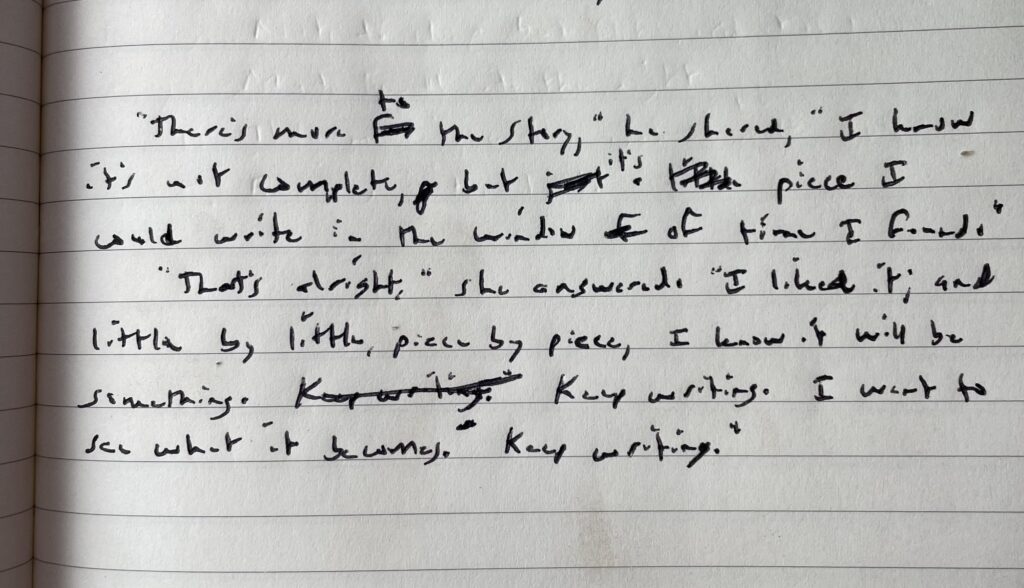 "There's more to the story," he shared, "I know
it's not complete, but it's piece I
could write in the window of time I found."
"That's alright," she answered. "I liked it; and
little by little, piece by piece, I know it will be
something. Keep writing." Keep writing. I want to
see what it becomes." Keep writing."